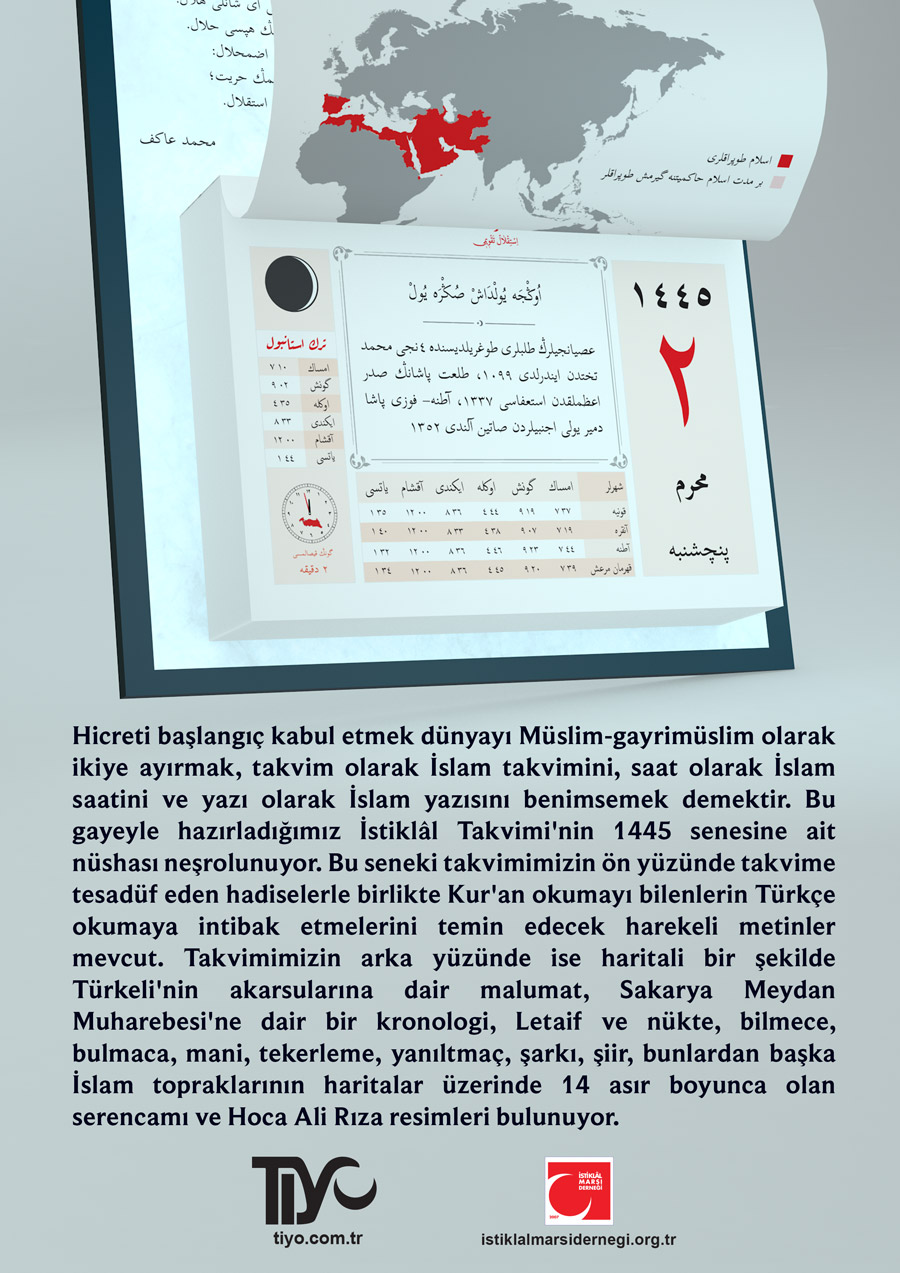 ای شانلی هلال
ڭ هپسی حلال.
اضمحلال:
ڭ حریت؛
استقلال.
محمد عاکف
اسلام طوپراقلری
بر مدت اسلام حاکمیتنه گیرمش طوپراقلر
اِسْتِقْلَالْ تَقْوِیمِی
١٤٤٥
٢
محرم
پنچشنبه
اُوكْجَه يُولْدَاشْ صُكْرَه يُولْ
عصیانجیلرڭ طلبلری طوغریلدیسنده ٤نجی محمد
تختدن ایندرلدی ١٠٩٩، طلعت پاشانڭ صدر
اعظملقدن استعفاسی ١٣٣٧، آطنه– فوزی پاشا
دمیر یولی اجنبیلردن صاتین آلندی ١٣٥٢
ترك استانبول
امساك ٧ ١٠
گونش ٩ ٠٢
اوكله ٤ ٣٥
ایكندی ٨ ٣٣
آقشام ١٢ ٠٠
یاتسی ١ ٤٤
گونڭ قیصالمسی
٢ دقیقه
شهرلر امساك گونش اوكله ایكندی آقشام یاتسی
قونیه ٧ ٣٧ ٩ ١٩ ٤ ٤٤ ٨ ٣٦ ١٢ ٠٠ ١ ٣٥
آنقره ٧ ١٩ ٩ ٠٧ ٤ ٣٨ ٨ ٣٣ ١٢ ٠٠ ١ ٤٠
آطنه ٧ ٤٤ ٩ ٢٣ ٤ ٤٦ ٨ ٣٦ ١٢ ٠٠ ١ ٣٢
قهرمان مرعش ٧ ٣٩ ٩ ٢٠ ٤ ٤٥ ٨ ٣٦ ١٢ ٠٠ ١ ٣٤
Hicreti başlangıç kabul etmek dünyayı Müslim-gayrimüslim olarak
ikiye ayırmak, takvim olarak İslam takvimini, saat olarak İslam
saatini ve yazı olarak İslam yazısını benimsemek demektir. Bu
gayeyle hazırladığımız İstiklâl Takvimi'nin 1445 senesine ait
nüshası neşrolunuyor. Bu seneki takvimimizin ön yüzünde takvime
tesadüf eden hadiselerle birlikte Kur'an okumayı bilenlerin Türkçe
okumaya intibak etmelerini temin edecek harekeli metinler
mevcut. Takvimimizin arka yüzünde ise haritali bir şekilde
Türkeli'nin akarsularına dair malumat, Sakarya Meydan
Muharebesi'ne dair bir kronologi, Letaif ve nükte, bilmece,
bulmaca, mani, tekerleme, yanıltmaç, şarkı, şiir, bunlardan başka
İslam topraklarının haritalar üzerinde 14 asır boyunca olan
serencamı ve Hoca Ali Rıza resimleri bulunuyor.
TIYO
tiyo.com.tr
İSTİKLÂL
MARŞI
DERNEĞİ
2007
istiklalmarsidernegi.org.tr